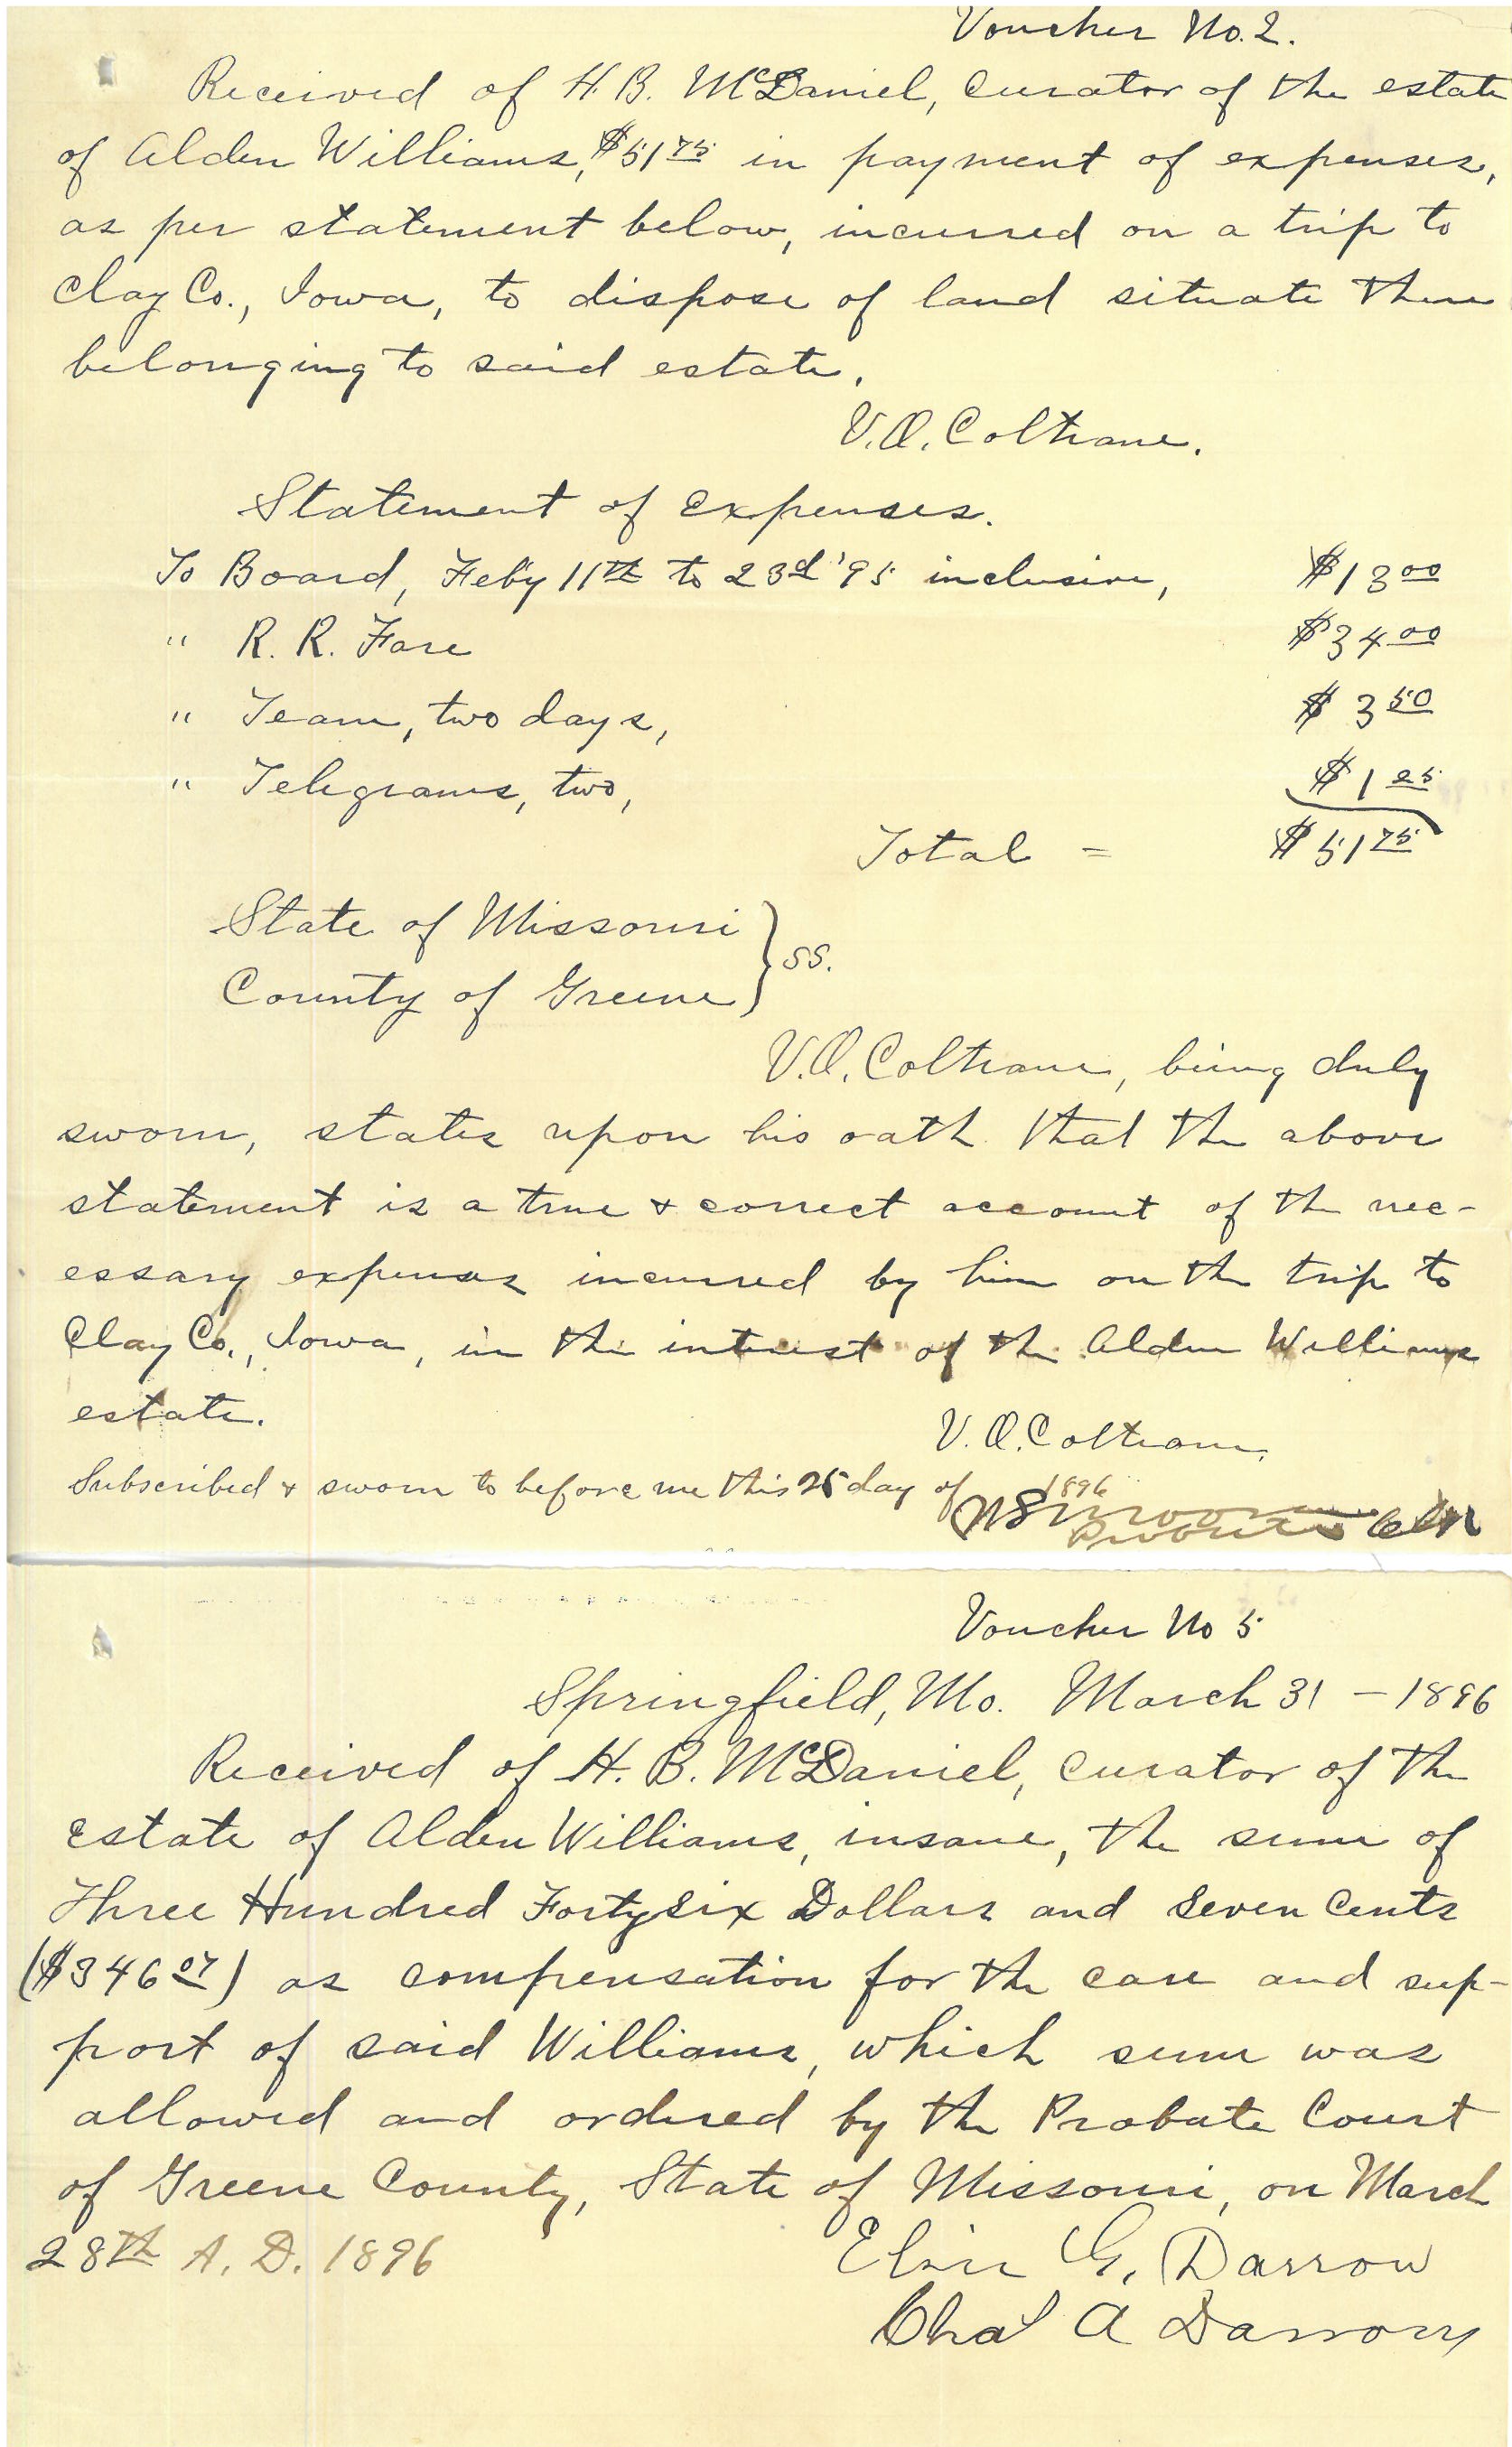 Voucher No. 2.
Received of H. B. McDaniel, Curator of the estate
of Alden Williams, $51 75 in payment of expenses,
as per statement below, incurred on a trip to
Clay Co., Iowa, to dispose of land situate there
belonging to said estate.
V. O. Coltrane.
Statement of Expenses.
To Board, Feb'y 11th to 23d '95 inclusive, $13 00
" R. R. Fare $34 00
" Team, two days, $ 3 50
" Telegrams, two, $ 1 25
Total = $51 75
State of Missouri } ss.
County of Greene
V. O. Coltrane, being duly
sworn, states upon his oath that the above
statement is a true & correct account of the nec-
essary expenses incurred by him on the trip to
Clay Co., Iowa, in the interest of the Alden Williams
estate.
V. O. Coltrane.
Subscribed & sworn to before me this 25 day of 1896
Probate
Voucher No 5
Springfield, Mo. March 31 - 1896
Received of H. B. McDaniel, Curator of the
estate of Alden Williams, insane, the sum of
Three Hundred Forty six Dollars and Seven Cents
($346 07) as compensation for the care and sup-
port of said Williams, which sum was
allowed and ordered by the Probate Court
of Greene County, State of Missouri, on March
28th A. D. 1896
G. Darrow
Chas A Darrow